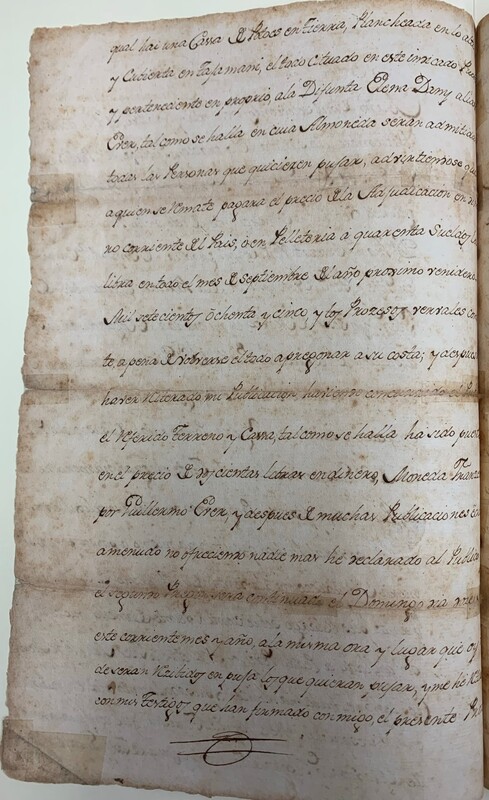 qual hai una Cassa de Postes en Tierra, Plancheada en lo alto
y Cuvierta en Tajamani, el todo cituado en este incicado
y perteneciente en proprio, ala Difunta Elena Dany alias
Eber, tal como se halla en cuia Almoneda seran admitidas
todas las Personas que quicieren pujar, advirtiendose a
aquien se Remate pagara el precio de la Adjudicacion en
ro corriente del Pais, ò en Pelleteria a quarenta Sueldos la
libra en todo el mes de Septiembre del año proximo venidero
Mil setecientos ochenta y cinco y los Prozesos vervales
to, a pena de volverse el todo apregonar a su costa; y despues
haver Reiterado mi Publicacion haviendo
el referido Terreno y Cassa, tal como se halla ha sido puesto
en el precio de Doscientas libras en dinero, Moneda
por Guillermo Eber, y despues de muchas Publicaciones
amenudo no ofreciendo nadie mas he declarado al Publico
el segundo Pregon sera continuado el Domingo dia
este corriente mes y año, ala misma ora y lugar que oy
de seran Recibidos en puja los que quieran pujar, y me he
con mis Testigos que han firmado conmigo, el presente